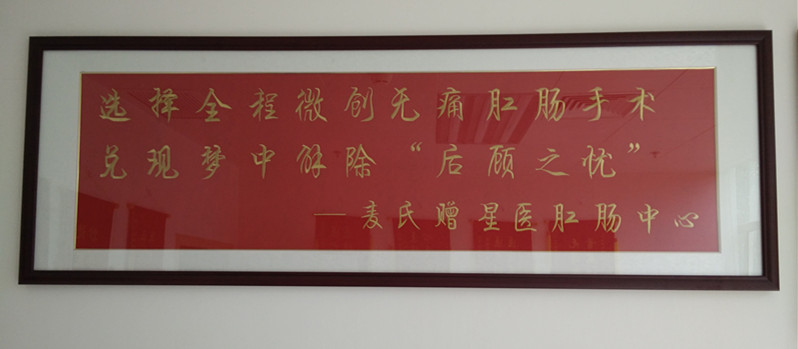 选择全程微创无痛肛肠手术
兑现梦中解除“后顾之忧”
——麦氏赠星医肛肠中心